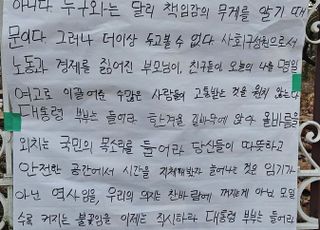 아니다. 누구와는 달리 책임감의 무게를 알기 때
문이다. 그러나 더이상 두고볼 수 없다. 사회구성원으로서
노동과 경제를 짊어진 부모님이, 친구들이 오늘의 나를 명일
여고로 이끌어준 수많은 사람들이 고통받는 것을 원치 않는다
대통령 부부는 들어라 한겨울 길바닥에 앉아 올바름을
외치는 국민의 목소리를 들어라 당신들이 따뜻하고
안전한 공간에서 시간을 지체해봤자 늘어나는 것은 임기가
아닌 역사임을, 우리의 의지는 찬바람에 꺼지는게 아닌 모일
수록 커지는 불꽃임을 이제는 직시하라 대통령 부부는 들어라